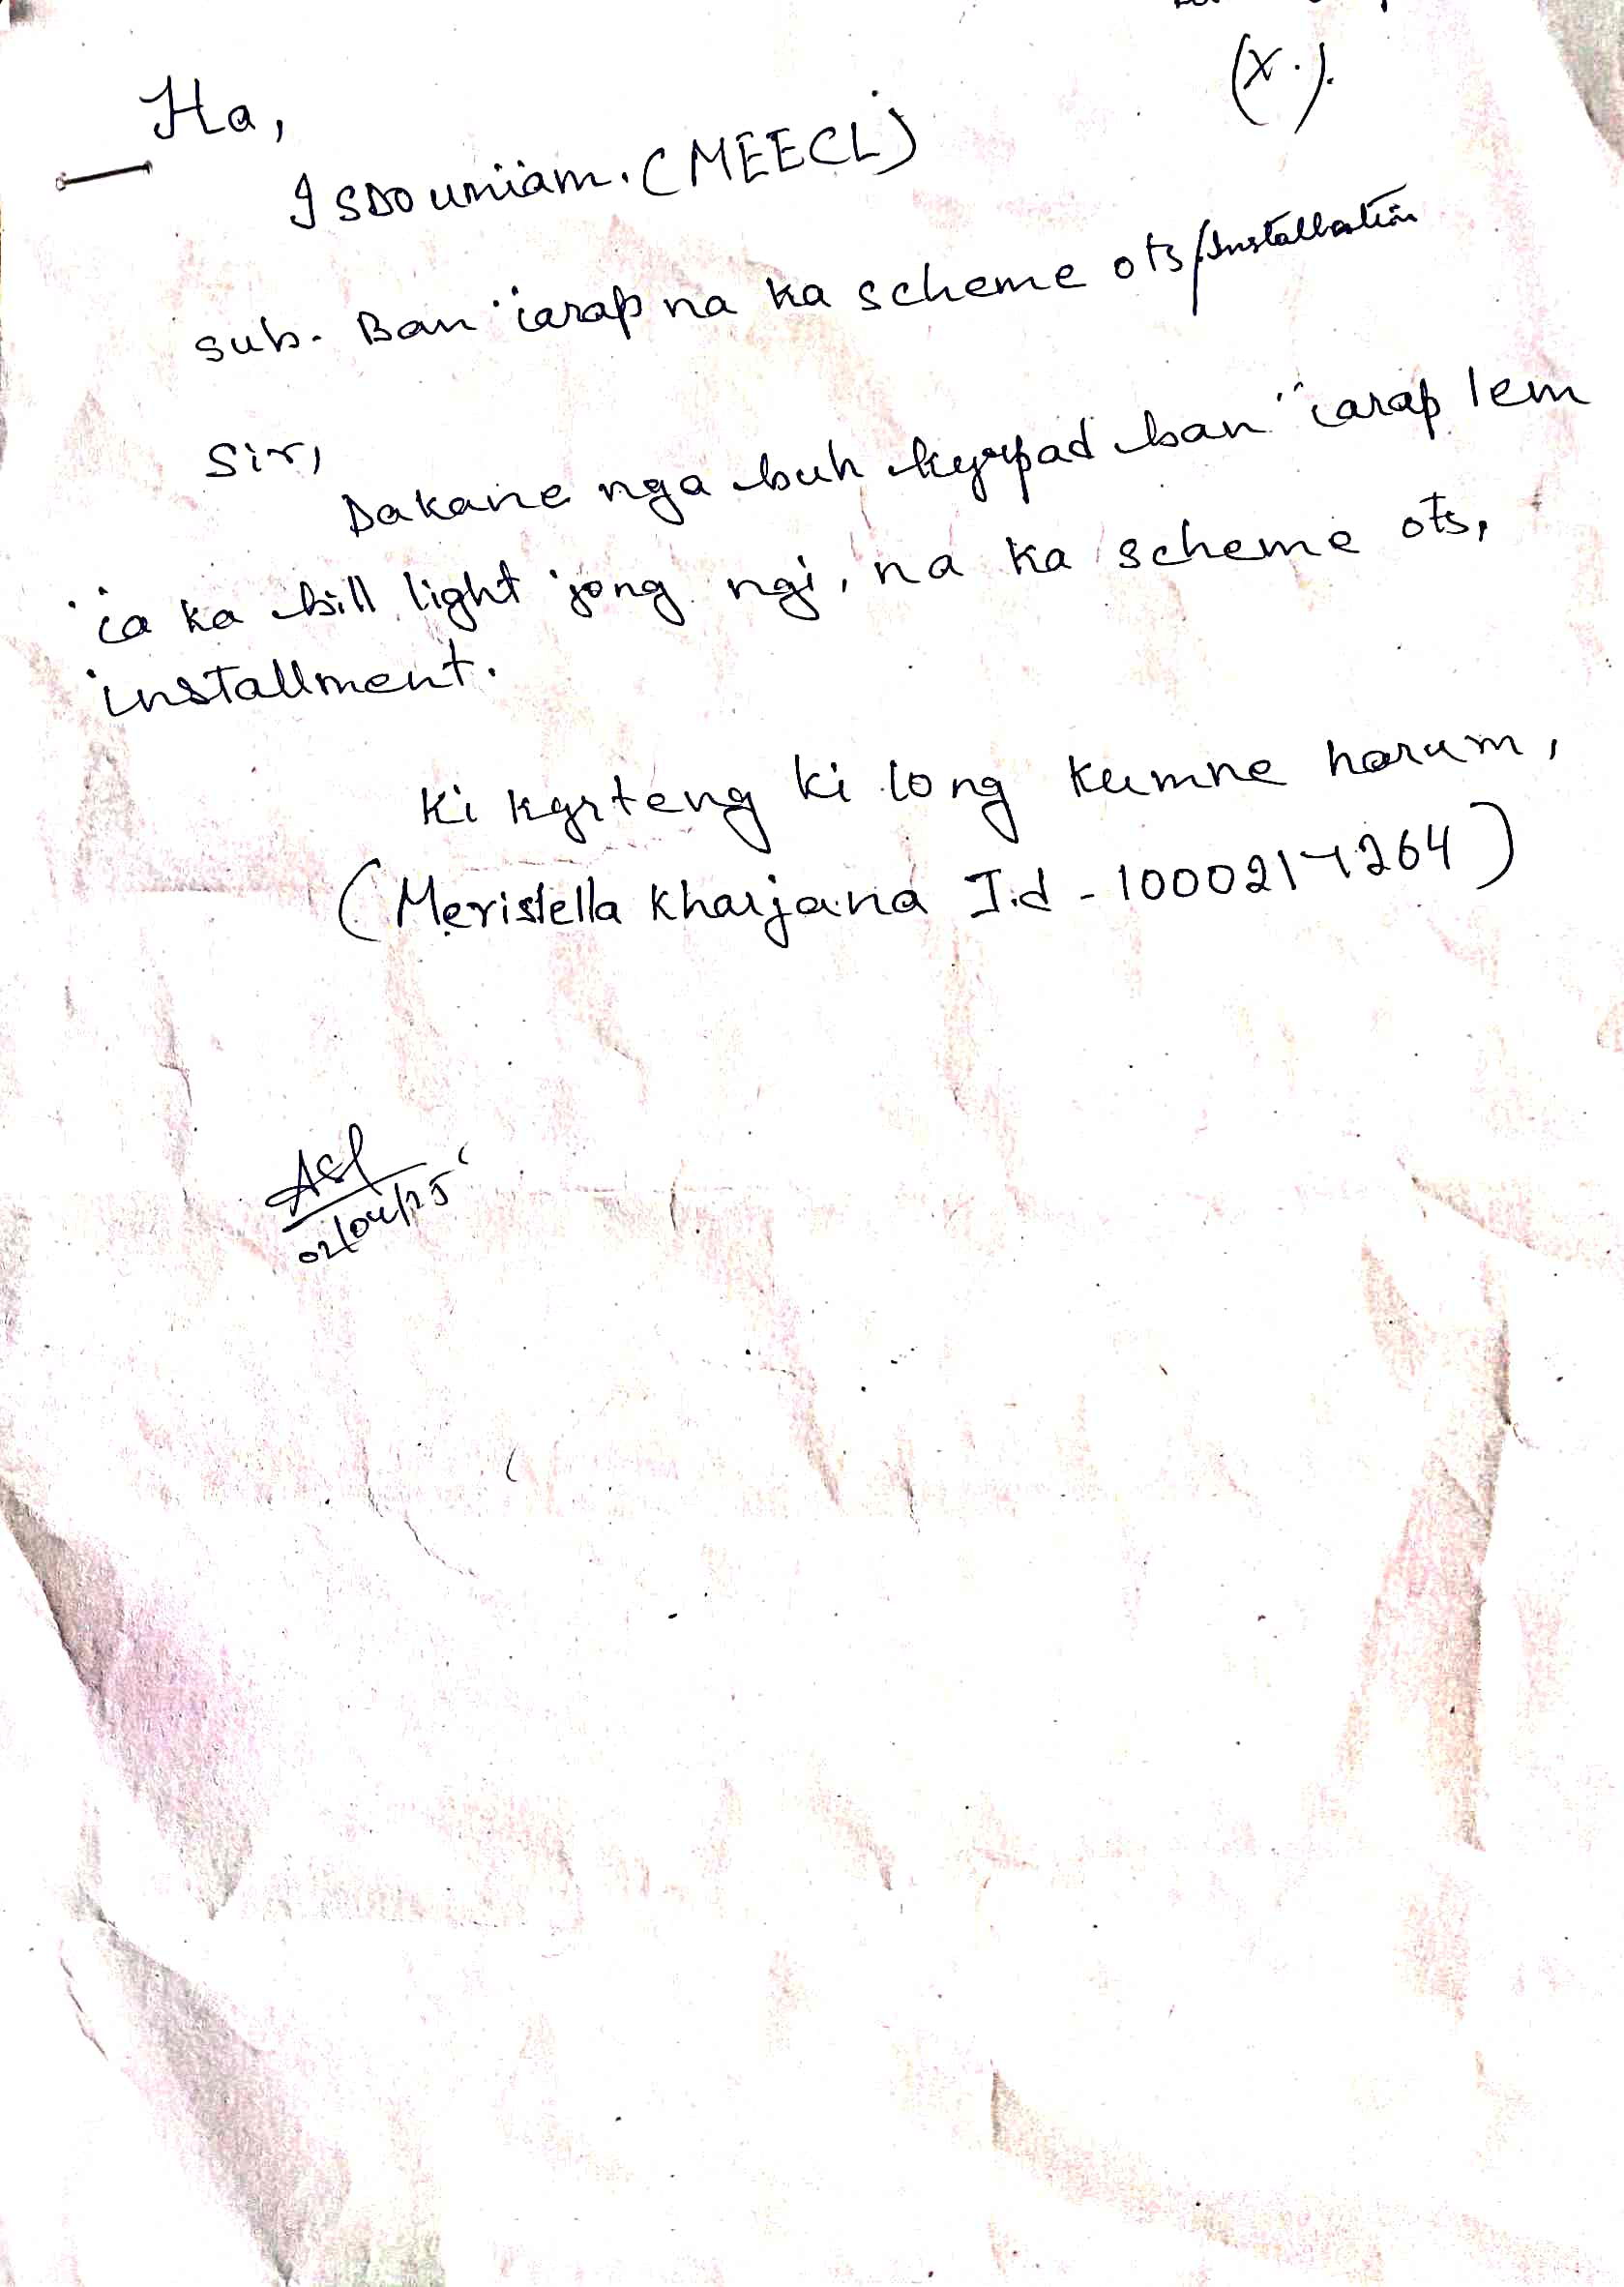 (X.).
Ha,
I SDO umiam. (MEECL)
sub. Ban ïarap na ka scheme ots/Installation
Sir,
Dakane nga buh kyrpad ban ïarap lem
ïa ka bill light jong ngi, na ka scheme ots,
installment.
Ki kyrteng ki long kumne harum,
(Meristella Kharjana I.d - 
02/04/25